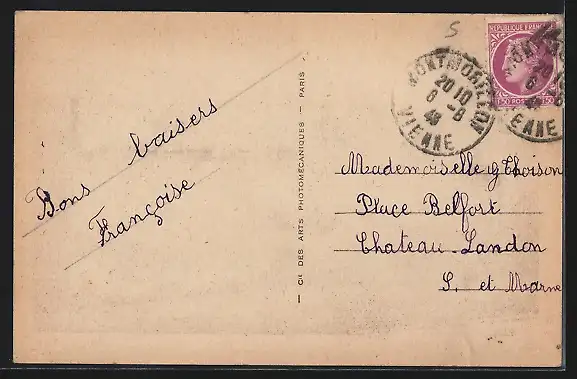 Bons baisers
Françoise
— Cie DES ARTS PHOTOMÉCANIQUES — PARIS —
S
MONTMORILLON
20 10
6 -8
46
VIENNE
REPUBLIQUE FRANÇAISE
1F50 POSTES 1F50
Mademoiselle G Thoison
Place Belfort
Chateau-Landon
S. et Marne